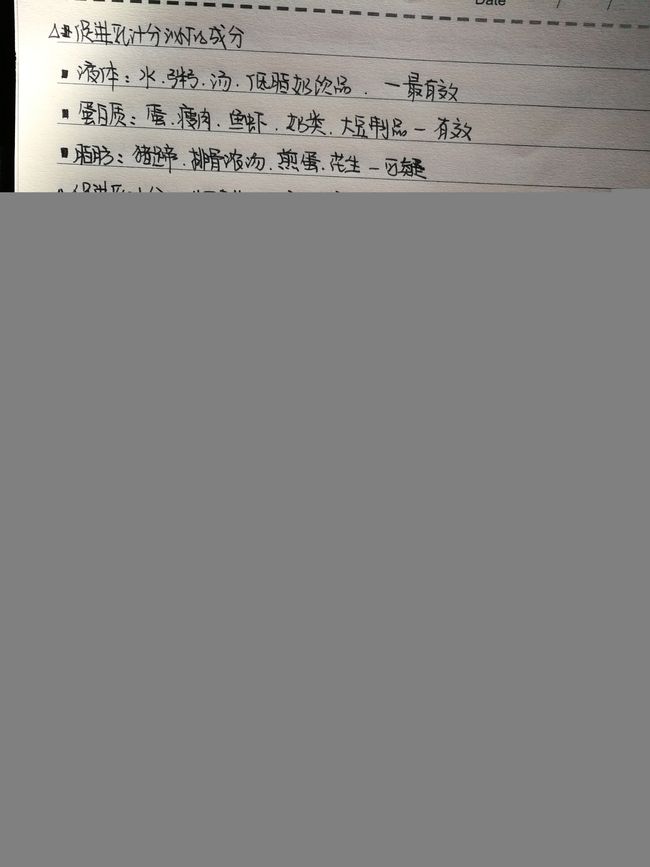 Date / /
△ 促进乳汁分泌的成分
▪ 液体：水.粥.汤.低脂奶饮品. —最有效
▪ 蛋白质：蛋.瘦肉.鱼虾.奶类.大豆制品—有效
▪ 脂肪：猪蹄.排骨浓汤.煎蛋.花生—可疑